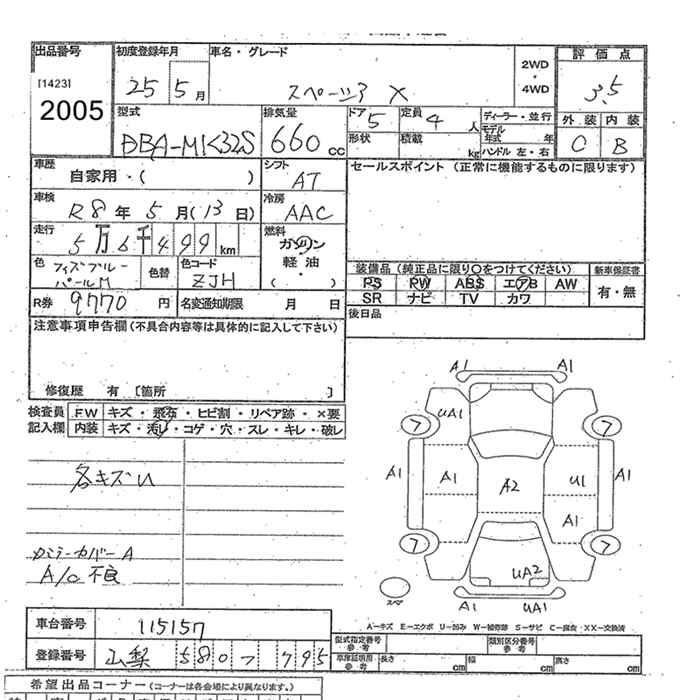 出品番号 初度登録年月 車名・グレード 2WD ・ 4WD 評価点
[1423] 25 5月 スペーシア X 3.5
2005
型式 排気量 ドア 5 定員 4人 ディーラー・並行 外装 内装
DBA-MK32S 660cc 形状 積載 kg モデル年式 年 C B
ハンドル 左・右
車歴 自家用・( ) シフト AT セールスポイント(正常に機能するものに限ります)
車検 R8年5月(13日) 冷房 AAC
走行 5万6千499km 燃料 ガソリン
軽油
・
( )
色 フィズブルーパールM 色替 色コード ZJH
装備品(純正品に限り○をつけてください) 新車保証書
PS PW ABS エアB AW 有・無
SR ナビ TV カワ
R券 9770円 名変通知期限 月 日 後日品
注意事項申告欄(不具合内容等は具体的に記入して下さい)
修復歴 有 [箇所 ]
検査員 FW キズ・飛石・ヒビ割・リペア跡・×要
記入欄 内装 キズ・汚れ・コゲ・穴・スレ・キレ・破レ
各キズU
A/O 不良
A1 A1
UA1
フ フ
A1 A1 A2 U1 A1
A1
フ フ
UA2
スペア A1 UA1
A-キズ E-エクボ U-凹み W-補修跡 S-サビ C-腐食 XX-交換済
車台番号 115157
登録番号 山梨 580 フ 795
型式指定番号 参考 類別区分番号 参考
車庫証明用 参考 長さ cm 幅 cm 高さ cm
希望出品コーナー(コーナーは各会場により異なります。)